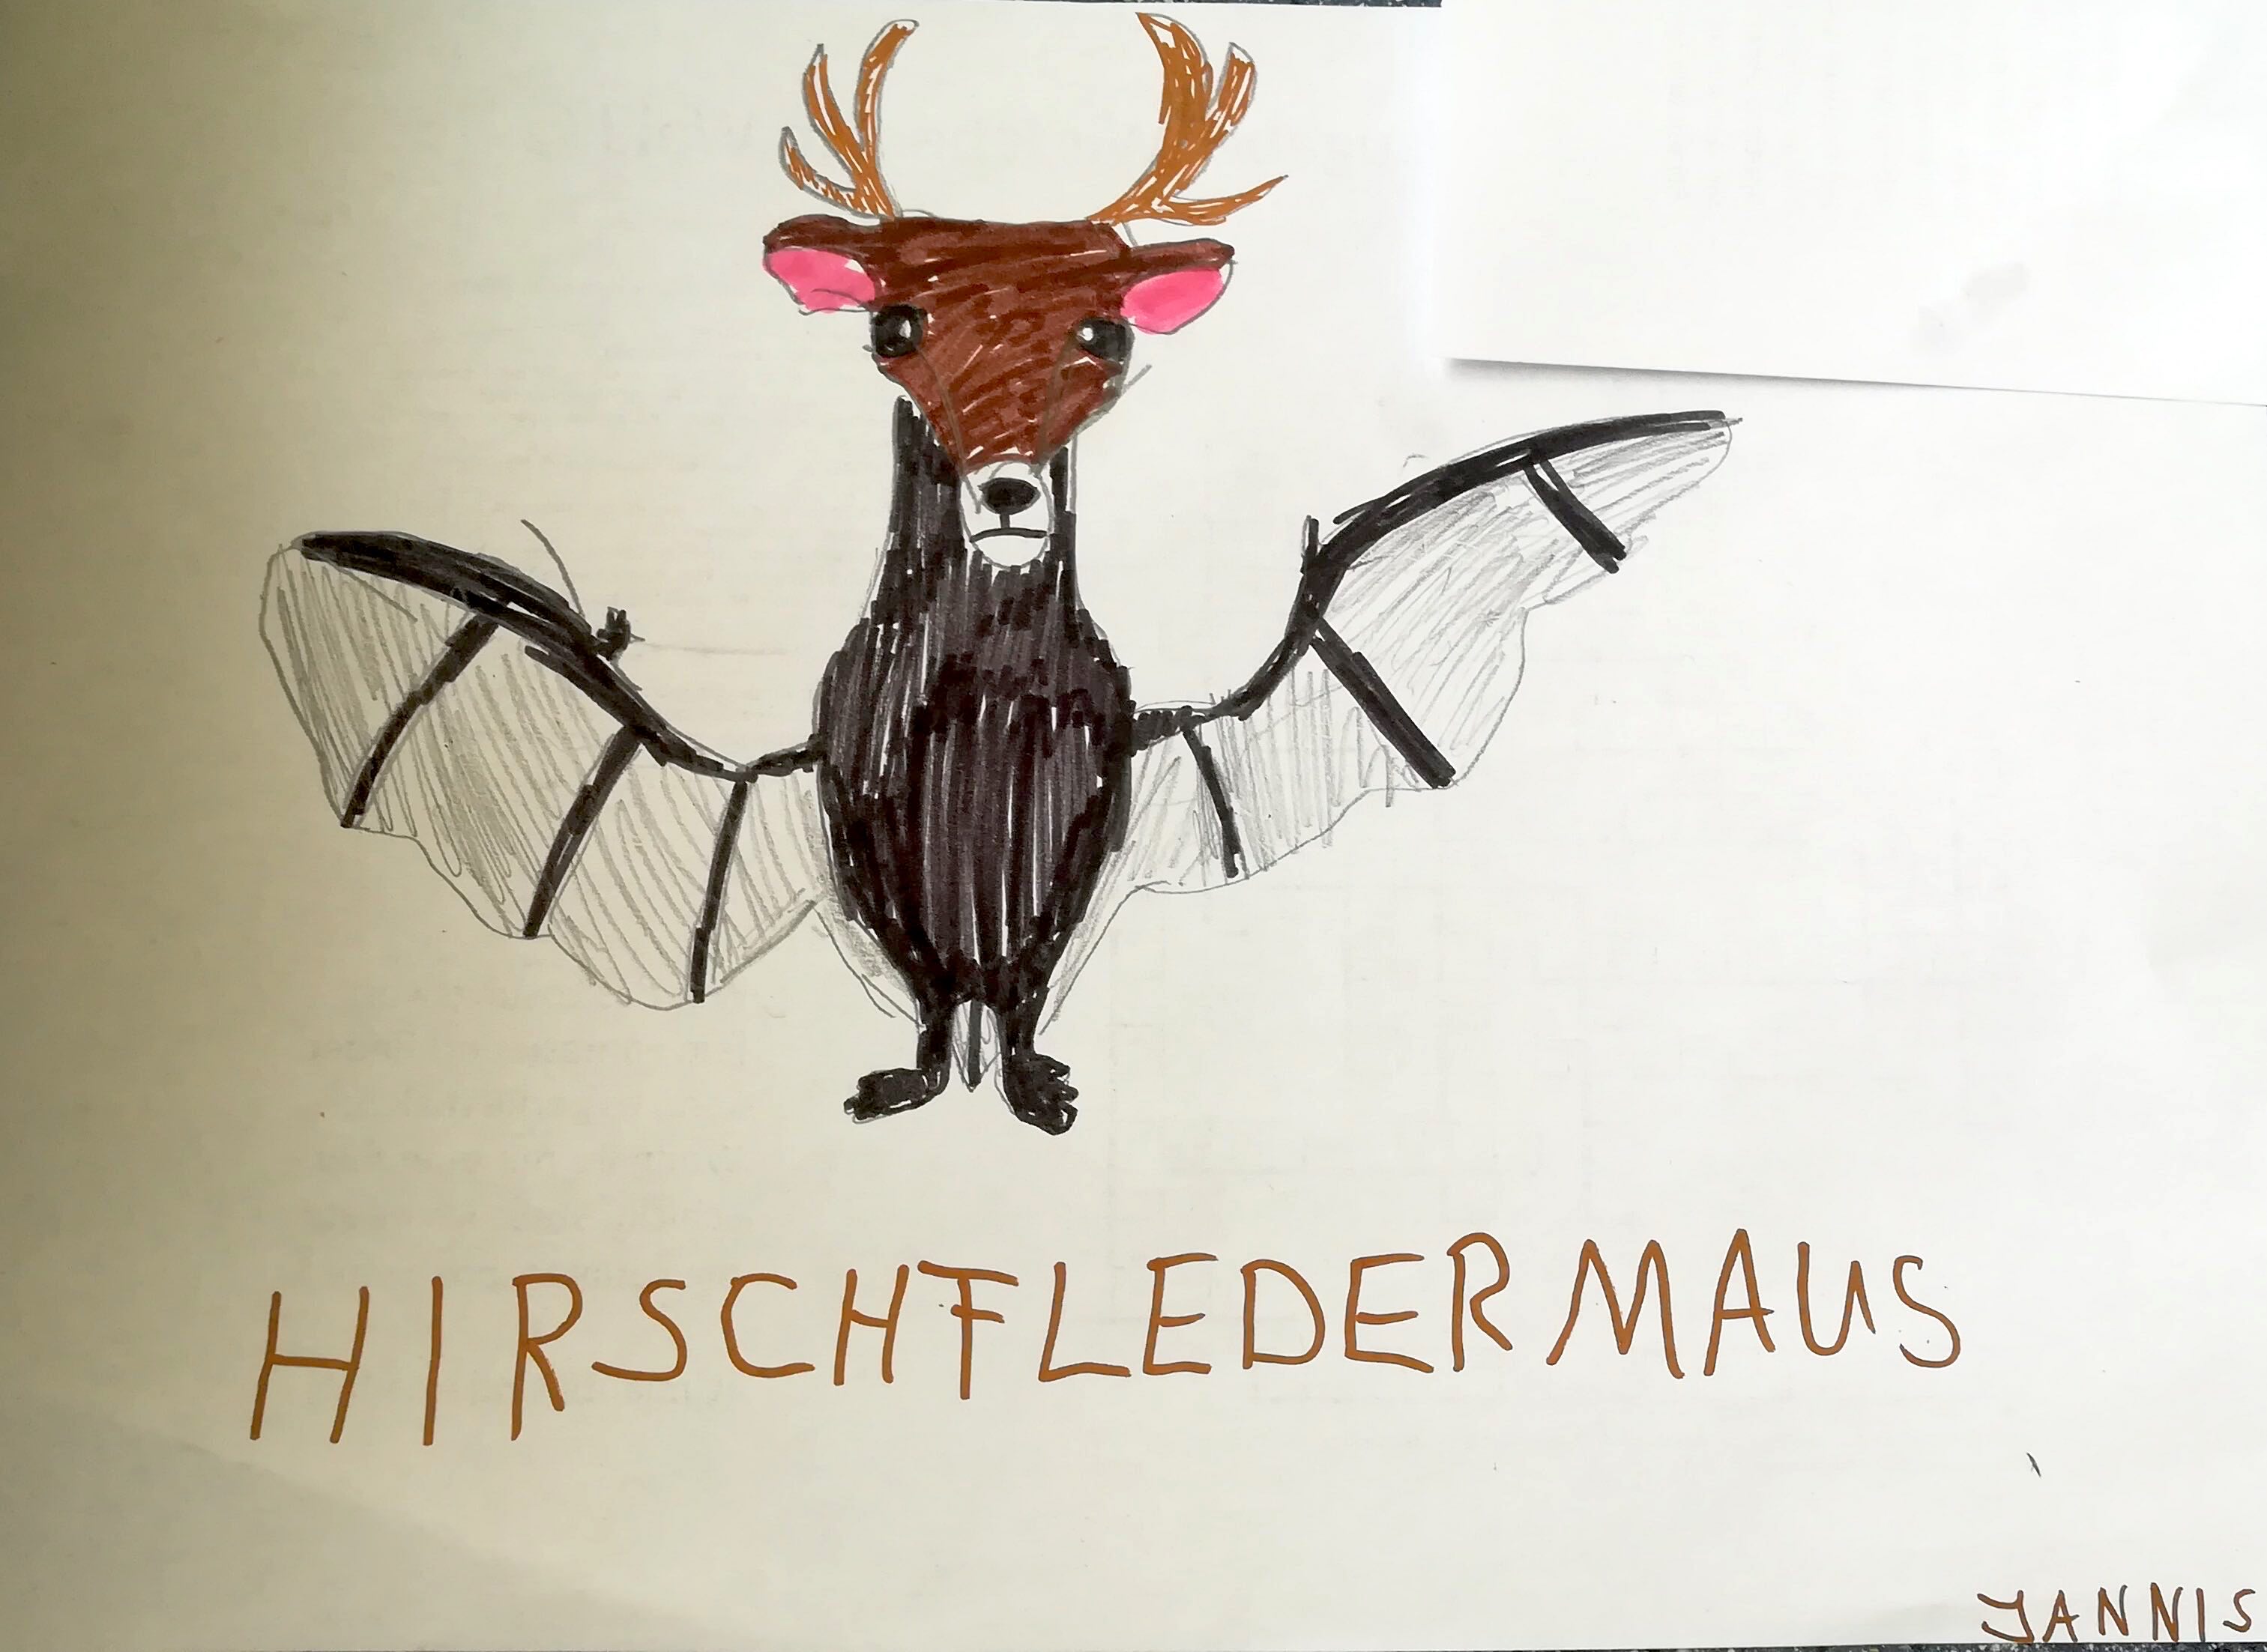 HIRSCHFLEDERMAUS
JANNIS